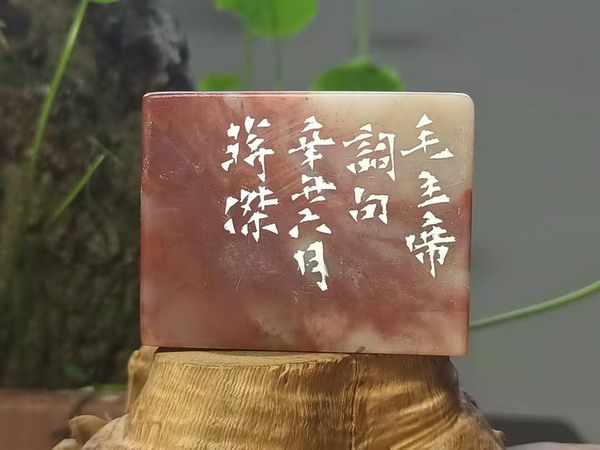 毛主席
詞句
辛丑六月
蔣傑